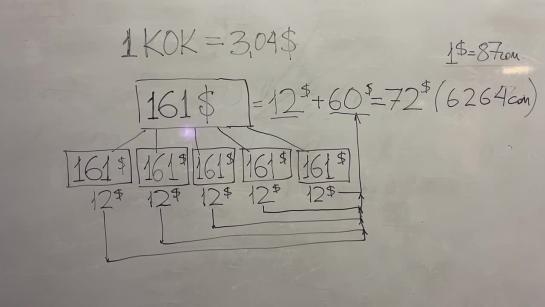 1 KOK = 3,04$
1$ = 87 сом
161$ = 12$ + 60$ = 72$ (6264 сом)
161$ 161$ 161$ 161$ 161$
12$ 12$ 12$ 12$ 12$